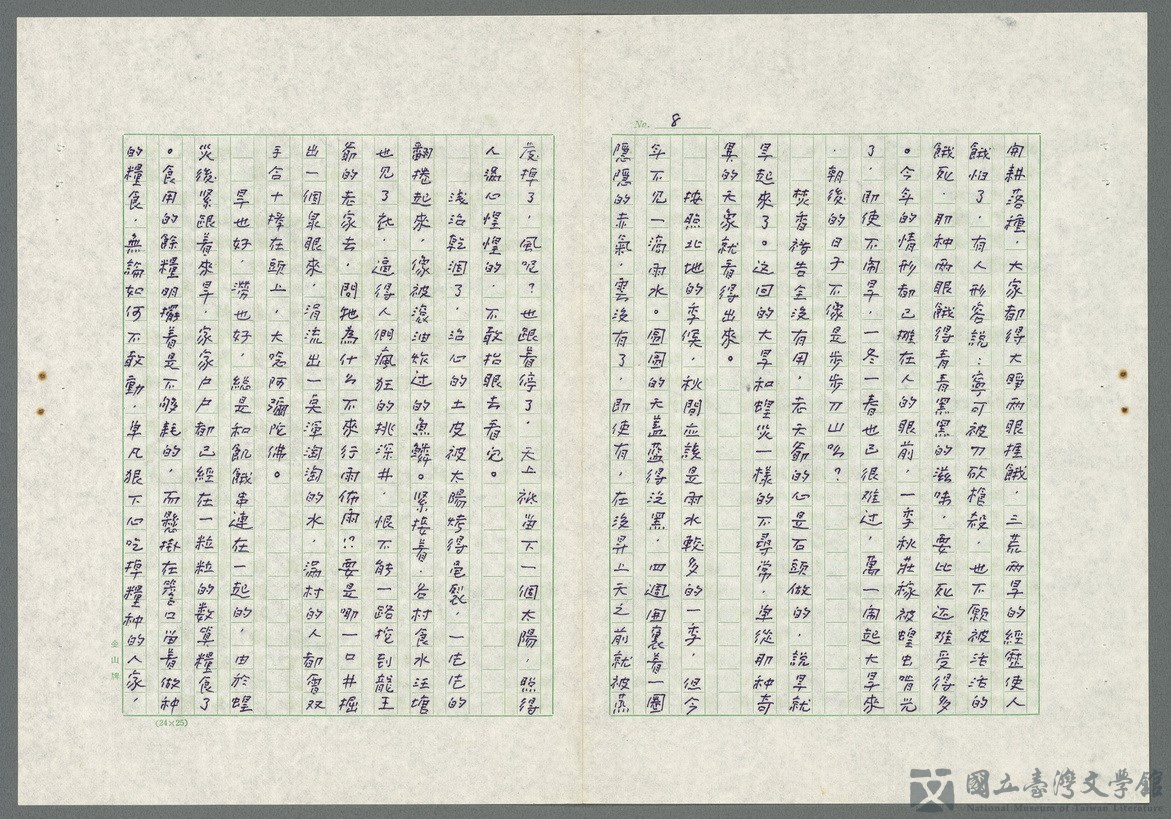 No. 8
開耕落種,大家都得大睜兩眼捱餓,三荒兩旱的經歷使人
餓怕了,有人形容說:寧可被刀砍槍殺,也不願被活活的
餓死,那种兩眼餓得青青黑黑的滋味,要比死还难受得多
。今年的情形都已擺在人的眼前,一季秋莊稼被蝗虫啃光
了,即使不鬧旱,一冬一春也已很难过,萬一鬧起大旱來
,朝後的日子不像是步步刀山么?
焚香禱告全沒有用,老天爺的心是石頭做的,說旱就
旱起來了。这回的大旱和蝗災一樣的不尋常,单從那种奇
異的天象就看得出來。
按照北地的季候,秋間应該是雨水較多的一季,但今
年不見一滴雨水。圓圓的天蓋藍得泛黑,四週圍裏着一圈
隱隱的赤氣,雲沒有了,即使有,在沒昇上天之前就被蒸
發掉了,風呢?也跟着停了,天上祇留下一個太陽,照得
人滿心惶惶的,不敢抬眼去看它。
淺沿乾涸了,沿心的土皮被太陽烤得龟裂,一坨坨的
翻捲起來,像被滾油炸过的魚鱗。緊接着,各村食水汪塘
也见了底,逼得人們瘋狂的挑深井,恨不能一路挖到龍王
爺的老家去,問牠為什么不來行雨佈雨!?要是哪一口井掘
出一個泉眼來,涓流出一臭渾淘淘的水,滿村的人都會双
手合十捧在頭上,大唸阿彌陀佛。
旱也好,澇也好,総是和飢餓串連在一起的,由於蝗
災後緊跟着來旱,家家戶戶都已經在一粒粒的数算糧食了
。食用的餘糧明擺着是不够耗的,而懸掛在簷口留着做种
的糧食,無論如何不敢動,单凡狠下心吃掉糧种的人家,
金山牌
(24×25)
國立臺灣文學館
National Museum of Taiwan Literature